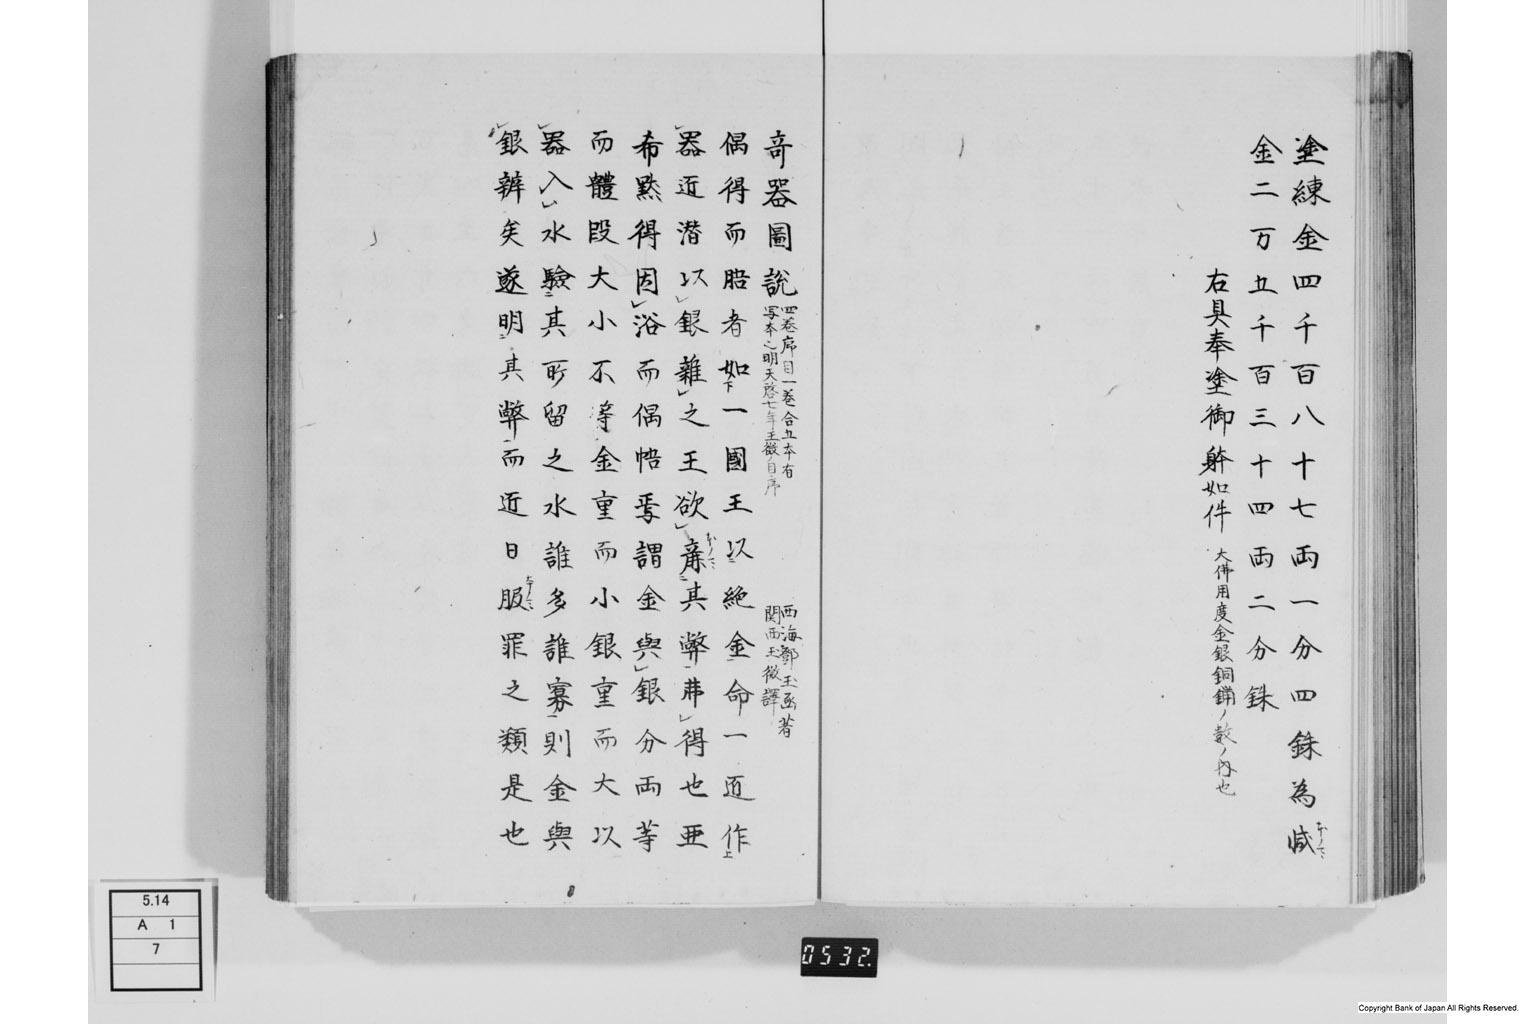 塗練金四千百八十七両一分四銖為減
金二万五千百三十四両二分銖
右具奉塗御躰如件
大佛用度金銀銅鑞ノ数ノ内也
奇器圖説
四巻序目一巻合五本有
写本之明天啓七年王徴ノ自序
西海鄧玉函著
関西王徴譯
偶得而皓者如一國王以絶金命一匠作
器近潜以銀雜之王欲廉其弊弗得也亜
希黙得因浴而偶悟焉謂金與銀分両等
而體段大小不等金重而小銀重而大以
器入水驗其所留之水誰多誰寡則金與
銀辨矣遂明其弊而近日服罪之類是也
5.14
A 1
7
0532
Copyright Bank of Japan All Rights Reserved.